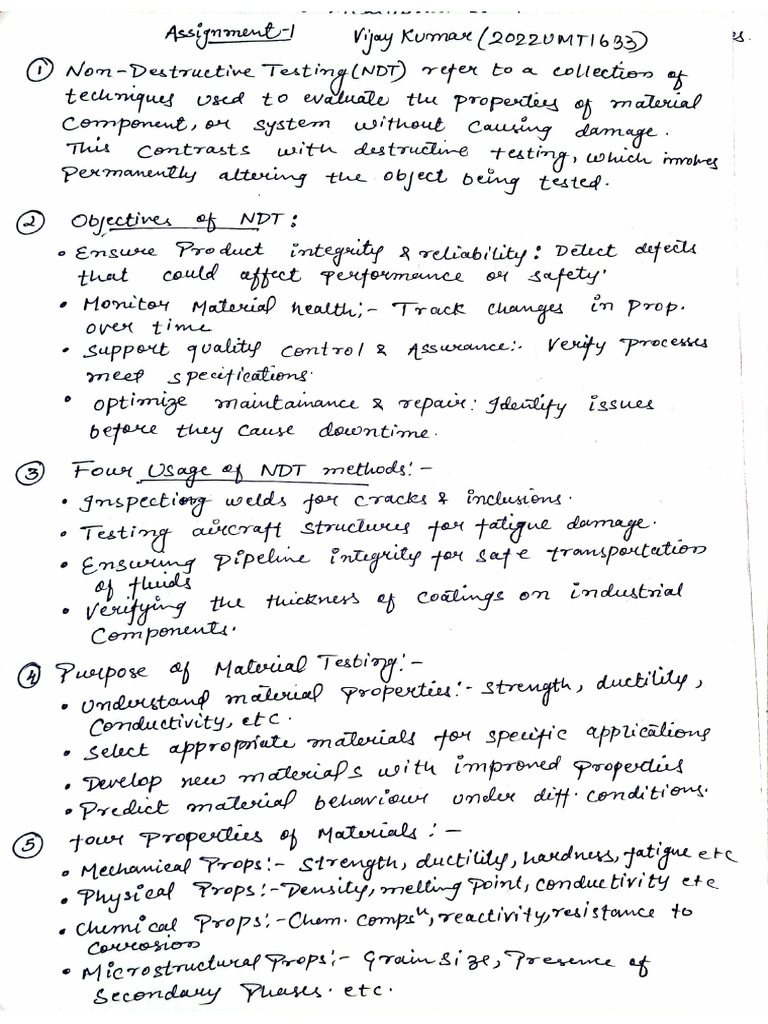 Assignment-1 Vijay Kumar (2022UMT1633)
① Non-Destructive Testing (NDT) refer to a collection of
techniques used to evaluate the properties of material
Component, or system without causing damage.
This contrasts with destructive testing, which involves
permanently altering the object being tested.
② Objectives of NDT:
• Ensure Product integrity & reliability: Detect defects
that could affect performance or safety.
• Monitor Material health;- Track changes in prop.
over time
• Support quality control & Assurance:. Verify processes
meet specifications.
• Optimize maintainance & repair: Identify issues
before they cause downtime.
③ Four Usage of NDT methods:-
• Inspecting welds for cracks & inclusions.
• Testing aircraft structures for fatigue damage.
• Ensuring pipeline integrity for safe transportation
of fluids
• Verifying the thickness of coatings on industrial
Components.
④ Purpose of Material Testing:-
• Understand material properties:- Strength, ductility,
Conductivity, etc.
• Select appropriate materials for specific applications
• Develop new materials with improved properties
• Predict material behaviour under diff. conditions.
⑤ four Properties of Materials:-
• Mechanical Props:- Strength, ductility, hardness, fatigue etc
• Physical Props:- Density, melting point, conductivity etc
• Chemical Props:- Chem. compsⁿ, reactivity, resistance to
corrosion
• Microstructural Props:- Grain Size, Presence of
Secondary Phases. etc.